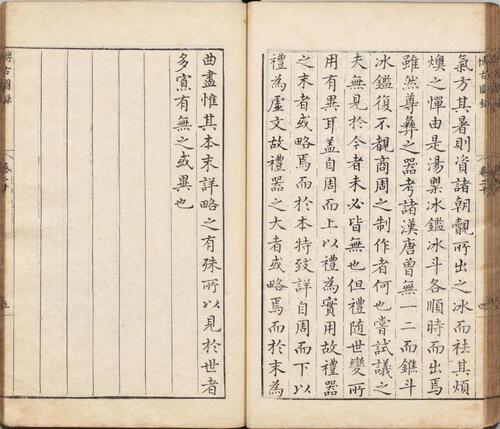 氣方其暑則資諸朝覿所出之冰而祛其煩
燠之憚由是湯罍冰鑑冰斗各順時而出焉
雖然尊彝之器考諸漢唐曾無一二而鐎斗
冰鑑復不覩商周之制作者何也嘗試議之
夫無見於今者未必皆無也但禮隨世變所
用有異耳蓋自周而上以禮為實用故禮器
之末者或略焉而於本特致詳自周而下以
禮為虛文故禮器之大者或略焉而於末為
曲盡惟其本末詳略之有殊所以見於世者
多寡有無之或異也
博古圖錄